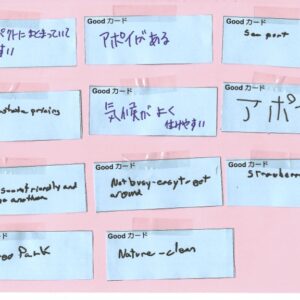 クトにまとまっていて
すい
Good カード
アポイがある
Good カード
Sea port
pricing
Good カード
気候がよく
住みやすい
Good カード
アポ
friendly and
another
Good カード
Not busy-easy to get
around
Good カード
Park
Good カード
Nature-clean